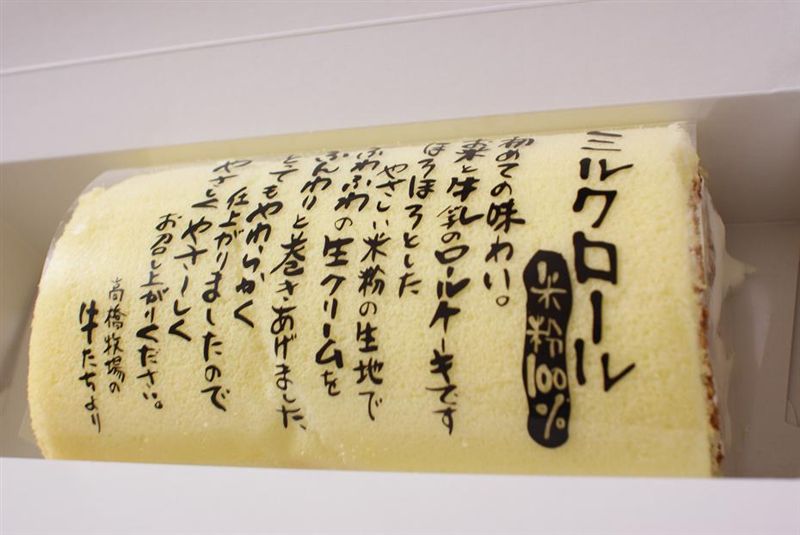 ミルクロール
米粉100%
初めての味わい。
栗と牛乳のロールケーキです
ほろほろとした
やさしい米粉の生地で
ふわふわの生クリームを
ふんわりと巻きあげました、
とてもやわらかく
仕上がりましたので
やさしくやさーしく
お召し上がりください。
高橋牧場の
牛たちより